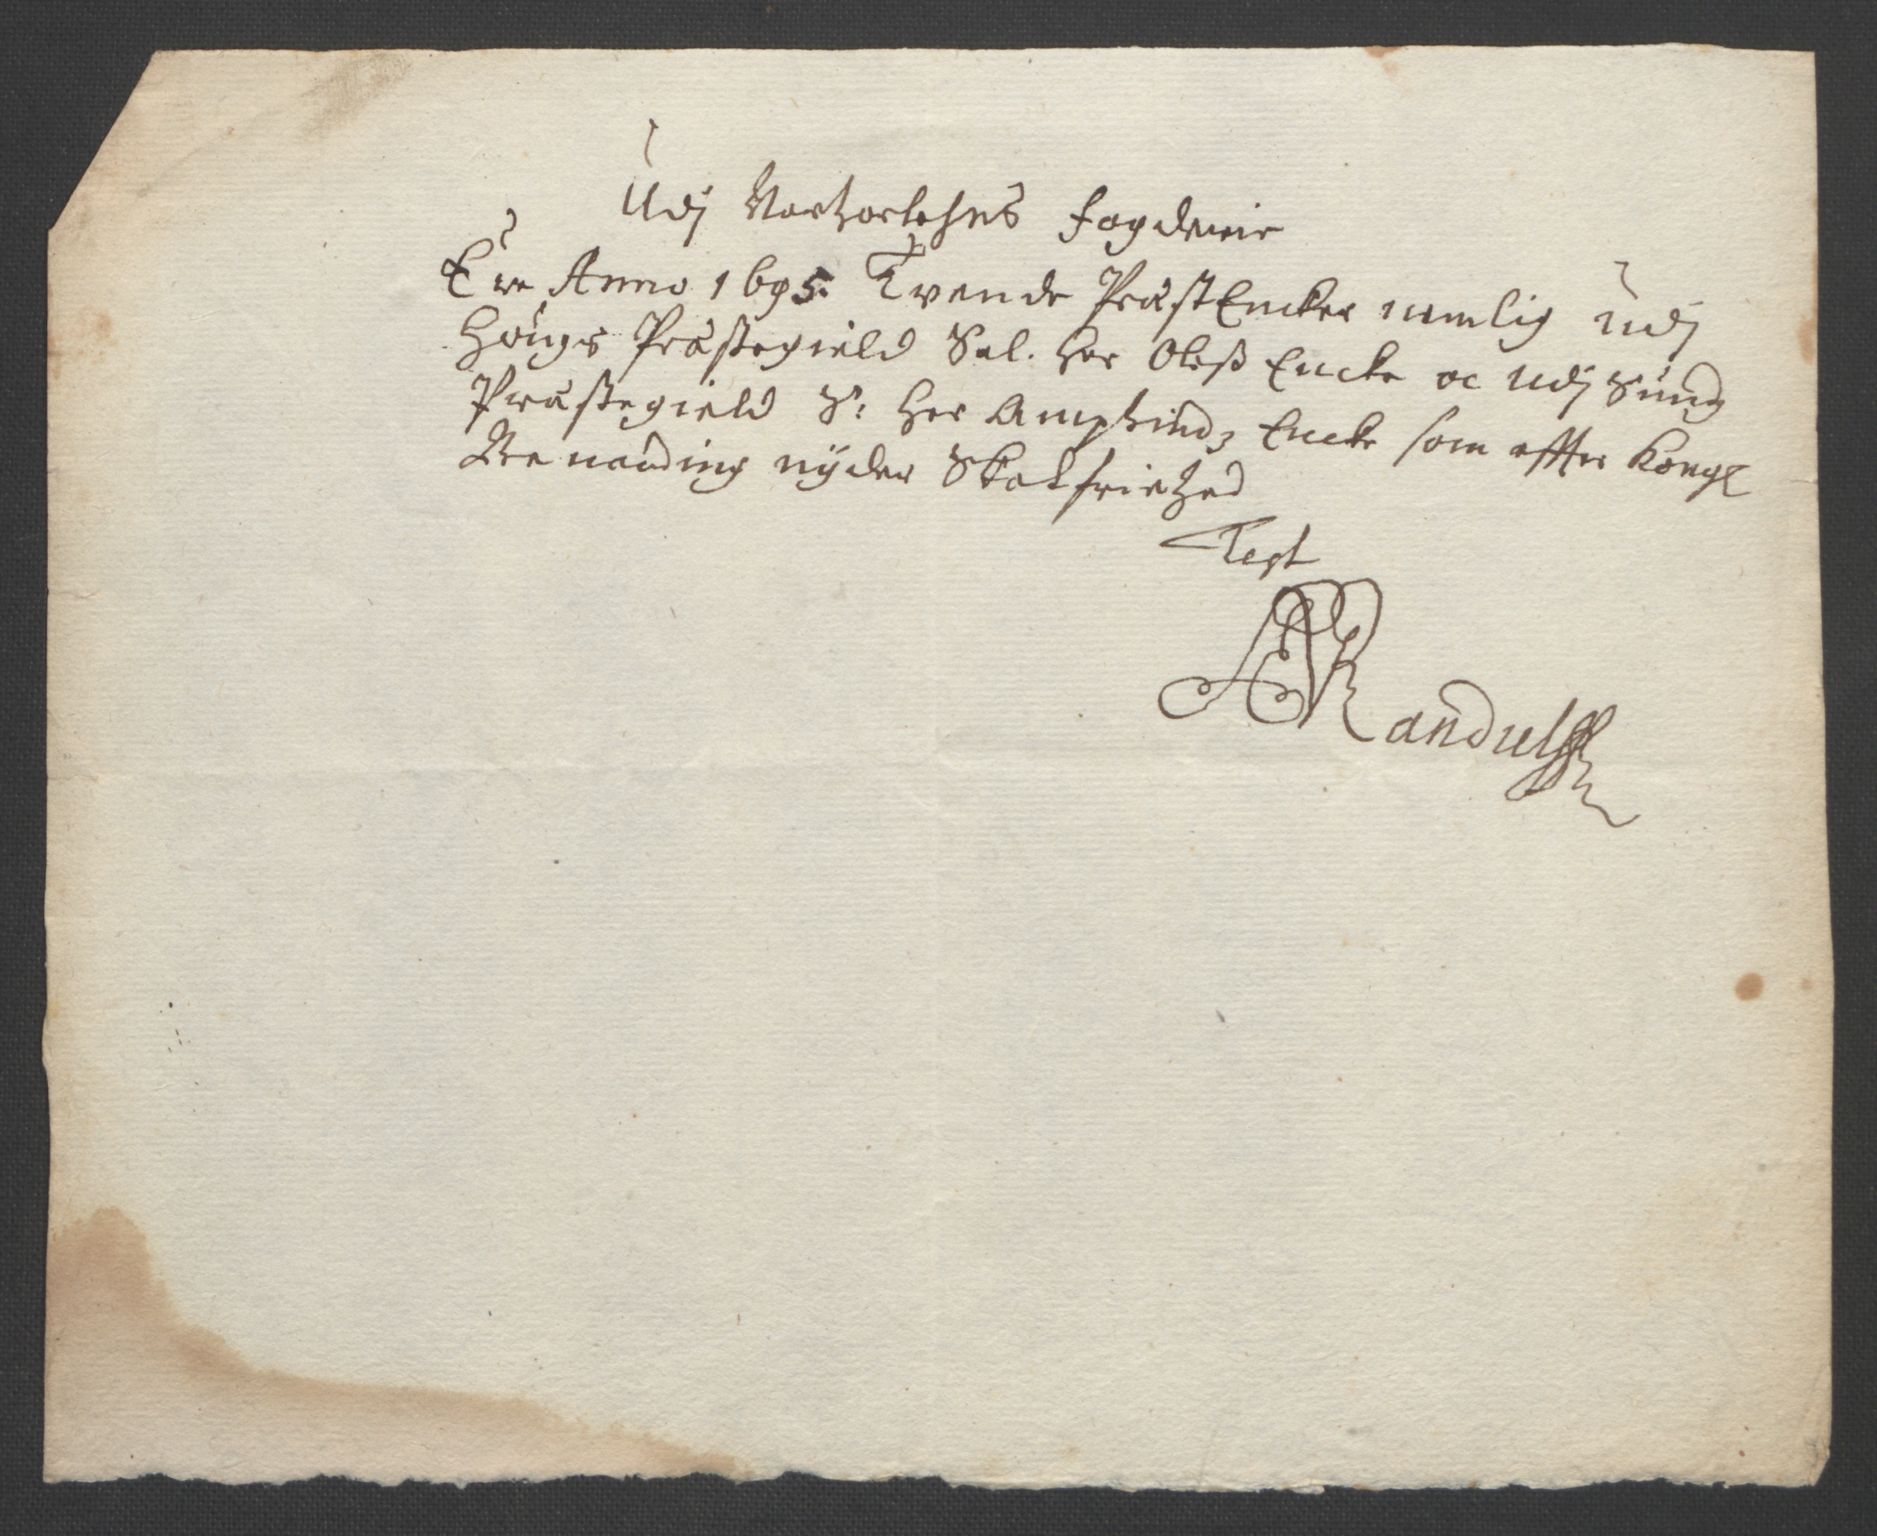 Udj Nordhorlehns fogderie
Ere Anno 1695. Tvende PræstEncker nemlig udj
Hougs Præstegield Sal. Her Oleß Encke oc udj Sund
Præstegield S: Her Amphindz Encke som effter Kongl
Benaading nyder Skatfriehed
Test
ARandulff